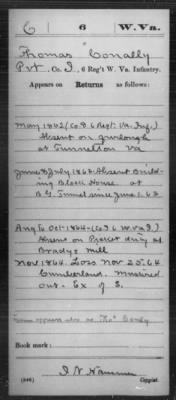 C | 6 | W.Va.
Thomas Conally
Pvt., Co. I, 6 Reg't W. Va. Infantry.
Appears on Returns as follows:
May 1862 (Co. B 6 Regt. Va. Inf.)
Absent on furlough
at Tunnelton Va
June & July 1862 Absent Build-
ing Block House at
B. G. Tunnel since June 1. 62
Aug to Oct 1864 (Co I 6 W.Va I)
Absent on Provost duty at
Bradys Mill
Nov 1864. Loss Nov 25. 64
Cumberland. Mustered
out. Ex of S.
Name appears also as
Book mark:
(546)
Copyist.